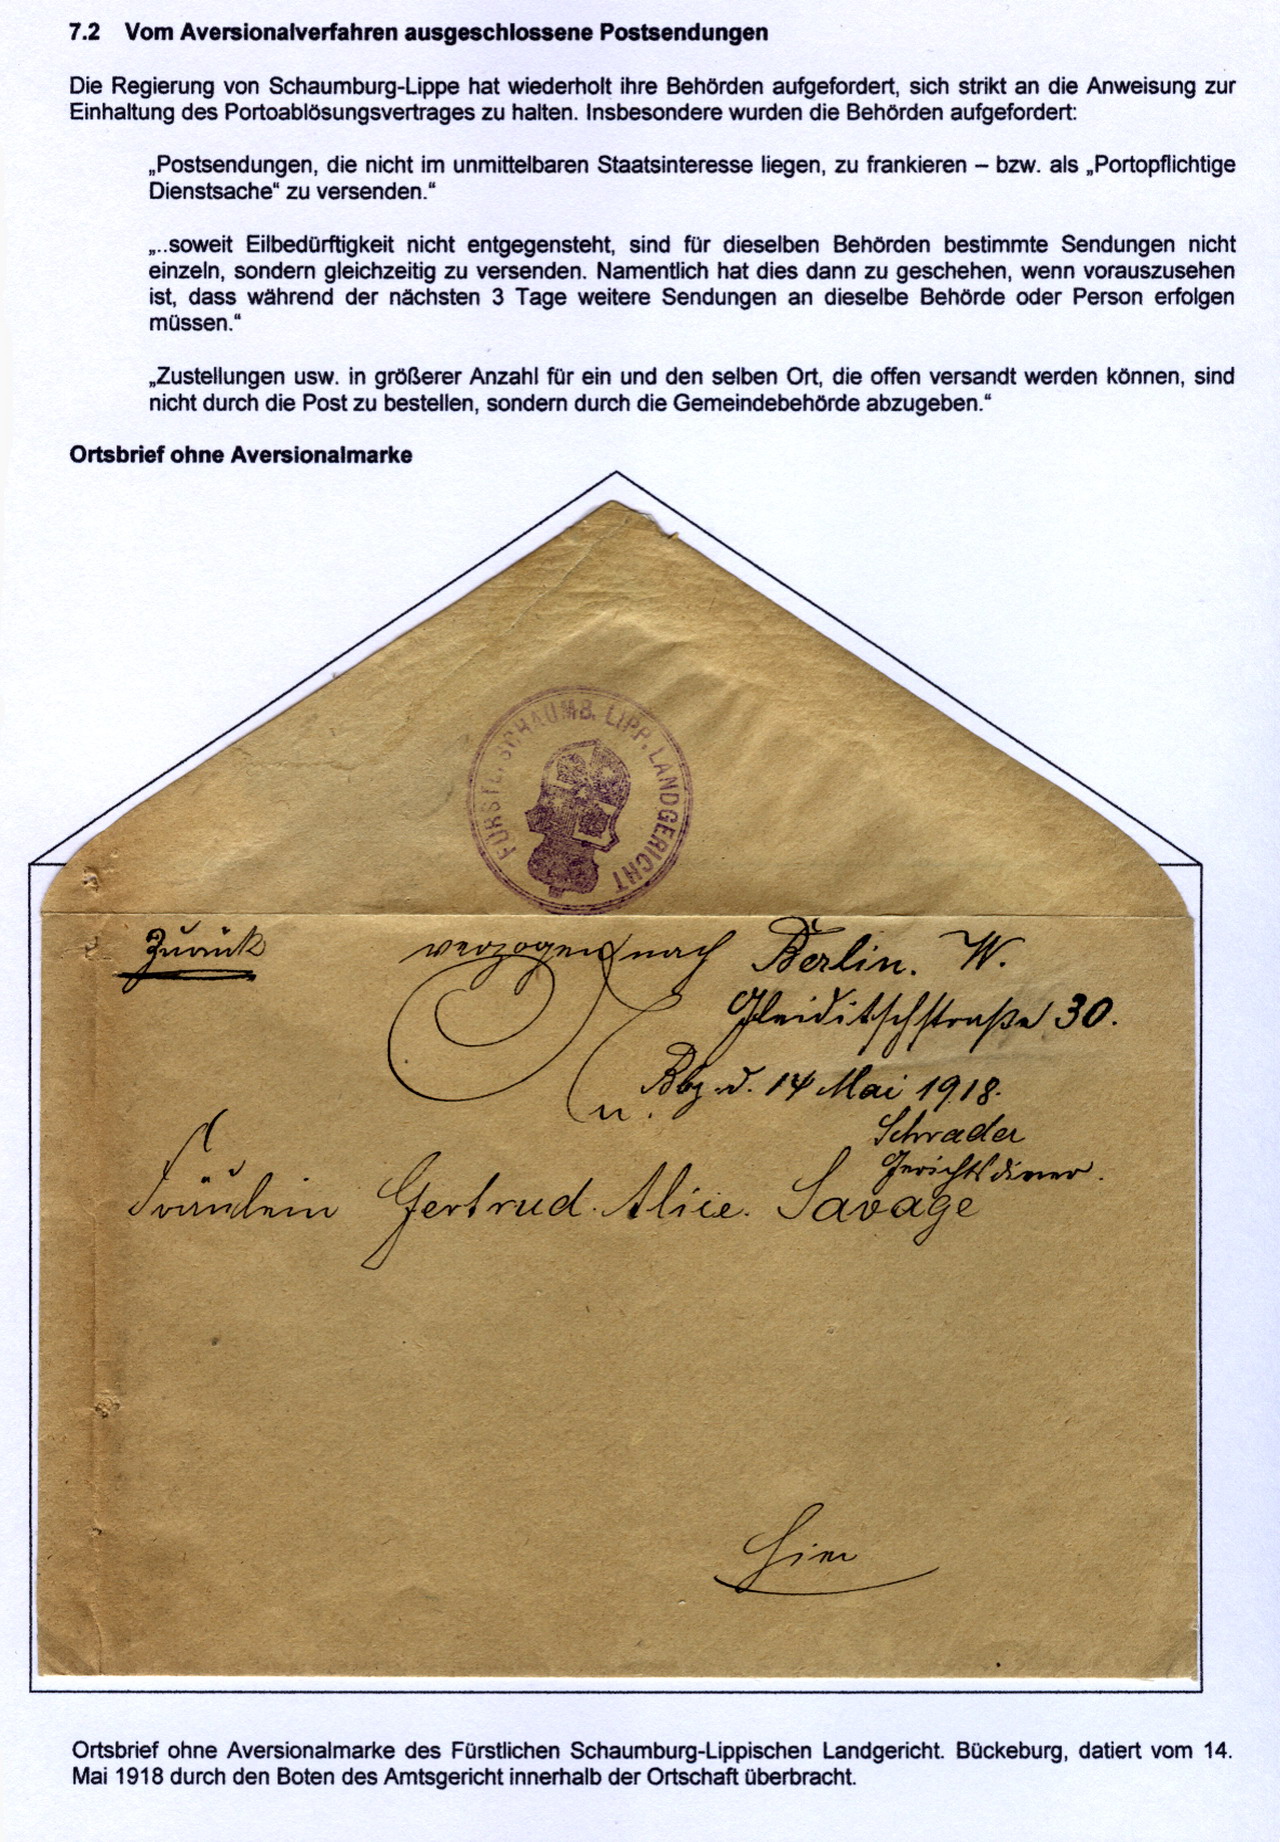 7.2 Vom Aversionalverfahren ausgeschlossene Postsendungen
Die Regierung von Schaumburg-Lippe hat wiederholt ihre Behörden aufgefordert, sich strikt an die Anweisung zur
Einhaltung des Portoablösungsvertrages zu halten. Insbesondere wurden die Behörden aufgefordert:
„Postsendungen, die nicht im unmittelbaren Staatsinteresse liegen, zu frankieren – bzw. als „Portopflichtige
Dienstsache“ zu versenden.“
„..soweit Eilbedürftigkeit nicht entgegensteht, sind für dieselben Behörden bestimmte Sendungen nicht
einzeln, sondern gleichzeitig zu versenden. Namentlich hat dies dann zu geschehen, wenn vorauszusehen
ist, dass während der nächsten 3 Tage weitere Sendungen an dieselbe Behörde oder Person erfolgen
müssen.“
„Zustellungen usw. in größerer Anzahl für ein und den selben Ort, die offen versandt werden können, sind
nicht durch die Post zu bestellen, sondern durch die Gemeindebehörde abzugeben.“
Ortsbrief ohne Aversionalmarke
FÜRSTL. SCHAUMB. LIPP. LANDGERICHT
Zurück verzogen nach Berlin. W.
Gleiditschstraße 30.
Bbg. d. 14 Mai 1918.
Schrader
Gerichtsdiener.
Fräulein Gertrud. Alice. Savage
Hier
Ortsbrief ohne Aversionalmarke des Fürstlichen Schaumburg-Lippischen Landgericht. Bückeburg, datiert vom 14.
Mai 1918 durch den Boten des Amtsgericht innerhalb der Ortschaft überbracht.